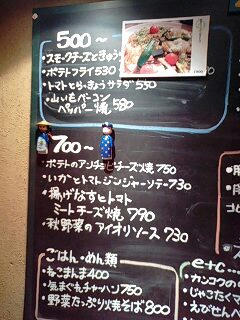 500～
・スモークチーズときゅう
・ポテトフライ530
・トマトとらっきょうサラダ 550
・山いもベーコン
ペッパー焼 580
700～
・ポテトのアンチョビチーズ焼 750
・いかとトマトジンジャーソテー730
・揚げなすとトマト
ミートチーズ焼 790
・秋野菜のアイオリソース 730
ごはん・めん類
・ねこまんま400
・気まぐれチャーハン750
・野菜たっぷり焼そば800
etc…
・カンコクの
・じゃこたくマ
・えびせんべ